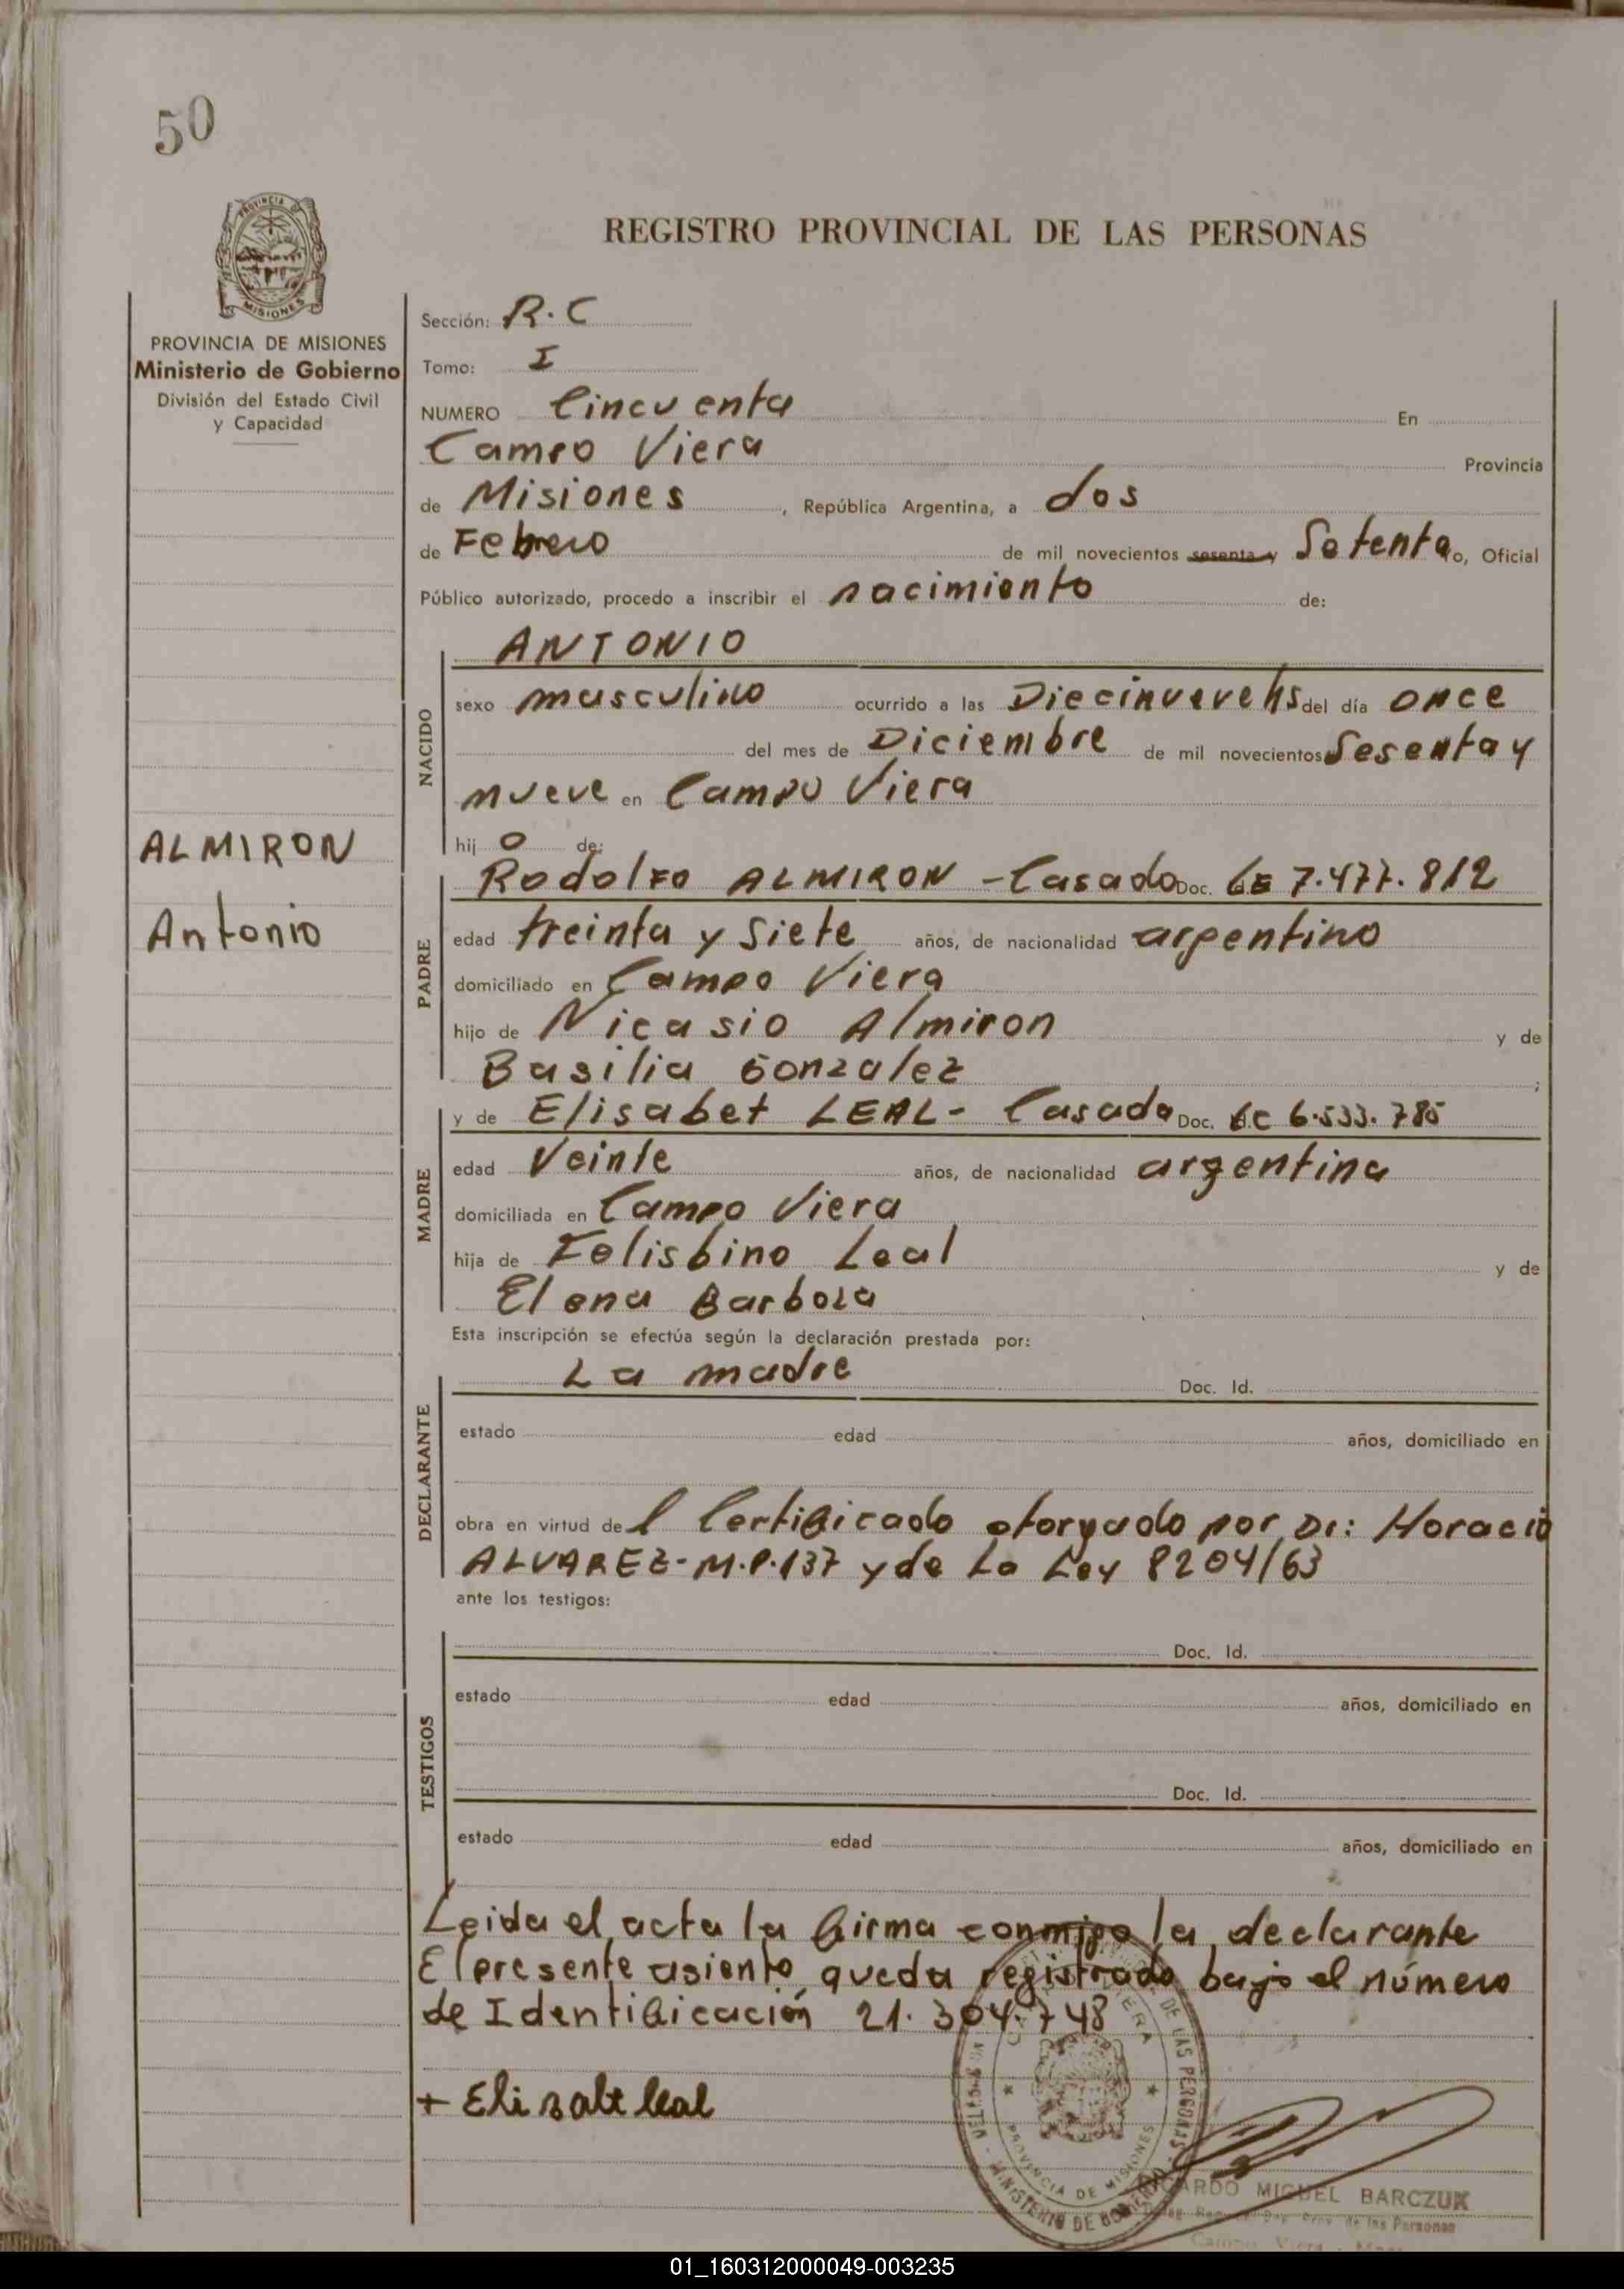 50
REGISTRO PROVINCIAL DE LAS PERSONAS
PROVINCIA DE MISIONES
Ministerio de Gobierno
División del Estado Civil
y Capacidad
ALMIRON
Antonio
Sección: R.C
Tomo: I
NUMERO Cincuenta En
Campo Viera Provincia
de Misiones, República Argentina, a dos
de Febrero de mil novecientos sesenta y Setenta o, Oficial
Público autorizado, procedo a inscribir el nacimiento de:
NACIDO
ANTONIO
sexo masculino ocurrido a las Diecinueve hs del día once
del mes de Diciembre de mil novecientos Sesenta y
nueve en Campo Viera
hij o de:
PADRE
Rodolfo ALMIRON - Casado Doc. LE 7.477.812
edad treinta y siete años, de nacionalidad argentino
domiciliado en Campo Viera
hijo de Nicasio Almiron y de
Basilia Gonzalez ;
MADRE
y de Elisabet LEAL - Casada Doc. LC 6.533.785
edad Veinte años, de nacionalidad argentina
domiciliada en Campo Viera
hija de Felisbino Leal y de
Elena Barboza
Esta inscripción se efectúa según la declaración prestada por:
DECLARANTE
La madre Doc. Id.
estado edad años, domiciliado en
obra en virtud del Certificado otorgado por Dr: Horacio
ALVAREZ - M.P.137 y de La Ley 8204/63
ante los testigos:
TESTIGOS
Doc. Id.
estado edad años, domiciliado en
Doc. Id.
estado edad años, domiciliado en
Leida el acta la firma conmigo la declarante
El presente asiento queda registrado bajo el número
de Identificación 21.304.748
+ Elisabet leal
PROVINCIA DE MISIONES
MINISTERIO DE GOBIERNO
DE LAS PERSONAS
RICARDO MIGUEL BARCZUK
de las Personas
01_160312000049-003235